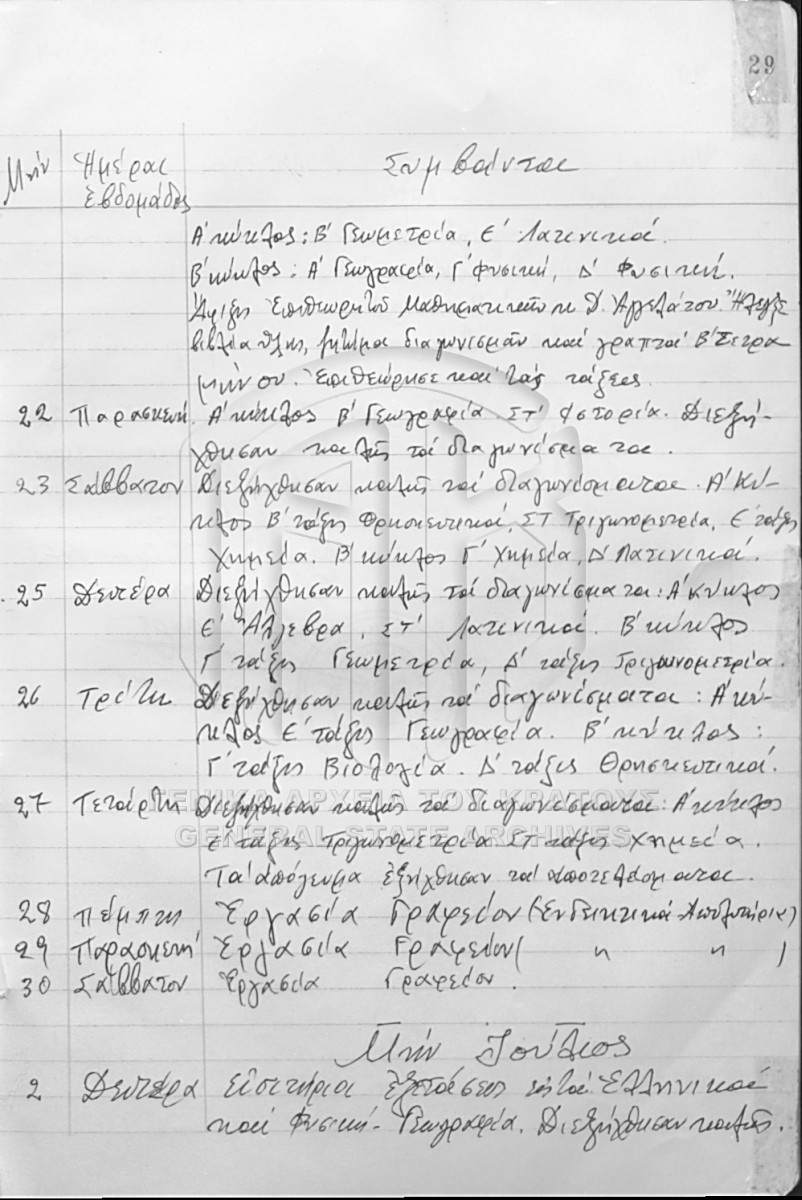 29
Μήν Ἡμέραι Ἑβδομάδος Συμβάντα
Α' κύκλος: Β' Γεωμετρία, Ε' Λατινικά.
Β' κύκλος: Α' Γεωγραφία, Γ' Φυσική, Δ' Φυσική.
Ἄφιξις Ἐπιθεωρητοῦ Μαθηματικῶν κ. Δ. Ἀγγελάτου. Ἤλεγξε
βιβλία ὕλης, ζητήμα διαγωνισμῶν καί γραπτά Β' Τετρα
μήνου. Ἐπιθεώρησε καί τάς τάξεις.
22 Παρασκευή. Α' κύκλος Β' Γεωγραφία. ΣΤ' Ἱστορία. Διεξή-
χθησαν καλῶς τά διαγωνίσματα.
23 Σάββατον Διεξήχθησαν καλῶς τά διαγωνίσματα. Α' Κύ-
κλος Β' τάξις Θρησκευτικά, ΣΤ Τριγωνομετρία, Ε' τάξις
Χημεία. Β' κύκλος Γ' Χημεία, Δ' Λατινικά.
25 Δευτέρα Διεξήχθησαν καλῶς τά διαγωνίσματα: Α' Κύκλος
Ε' Ἄλγεβρα, ΣΤ' Λατινικά. Β' κύκλος
Γ' τάξις Γεωμετρία, Δ' τάξις Τριγωνομετρία.
26 Τρίτη Διεξήχθησαν καλῶς τά διαγωνίσματα: Α' κύ-
κλος Ε' τάξις Γεωγραφία. Β' κύκλος:
Γ' τάξις Βιολογία. Δ' τάξις Θρησκευτικά.
27 Τετάρτη Διεξήχθησαν καλῶς τά διαγωνίσματα: Α' κύκλος
Ε' τάξις Τριγωνομετρία ΣΤ τάξις Χημεία.
Τό ἀπόγευμα ἐξήχθησαν τά ἀποτελέσματα.
28 Πέμπτη Ἐργασία Γραφείου (Ἐνδεικτικά-Ἀπολυτήρια)
29 Παρασκευή Ἐργασία Γραφείου ( " " )
30 Σάββατον Ἐργασία Γραφείου.
Μήν Ἰούλιος
2 Δευτέρα Εἰσιτήριοι ἐξετάσεις εἰς τά Ἑλληνικά
καί Φυσική - Γεωγραφία. Διεξήχθησαν καλῶς.
ΓΕΝΙΚΑ ΑΡΧΕΙΑ ΤΟΥ ΚΡΑΤΟΥΣ
GENERAL STATE ARCHIVES